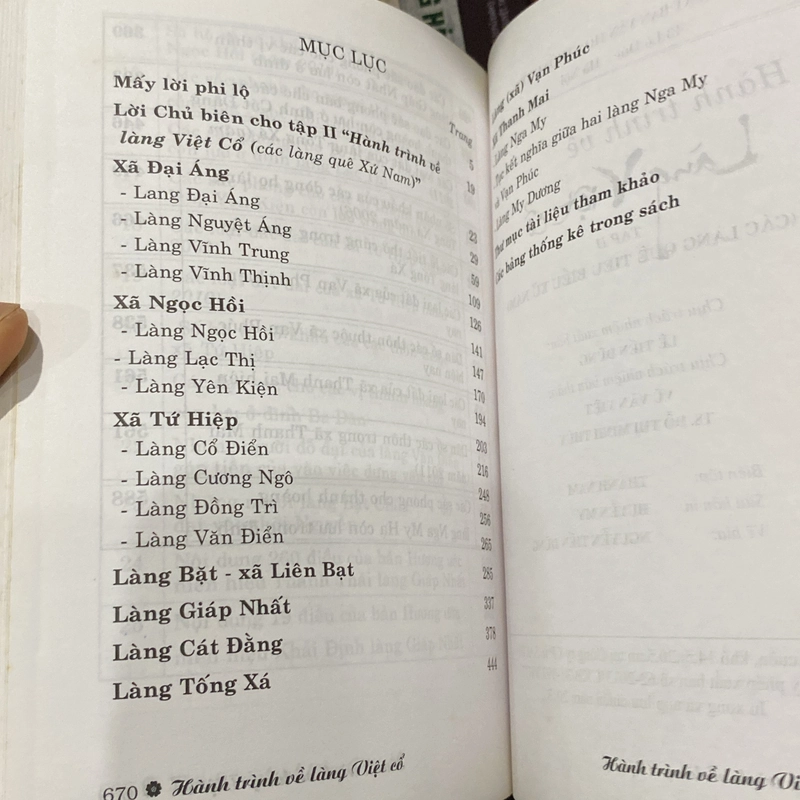 MỤC LỤC
Trang
Mấy lời phi lộ 5
Lời Chủ biên cho tập II “Hành trình về
làng Việt Cổ (các làng quê Xứ Nam)” 19
Xã Đại Áng 23
- Lang Đại Áng 29
- Làng Nguyệt Áng 59
- Làng Vĩnh Trung 109
- Làng Vĩnh Thịnh 126
Xã Ngọc Hồi 141
- Làng Ngọc Hồi 147
- Làng Lạc Thị 170
- Làng Yên Kiện 194
Xã Tứ Hiệp 203
- Làng Cổ Điển 216
- Làng Cương Ngô 248
- Làng Đồng Trì 256
- Làng Văn Điển 265
Làng Bặt - xã Liên Bạt 285
Làng Giáp Nhất 337
Làng Cát Đằng 378
Làng Tống Xá 444
670 Hành trình về làng Việt cổ
(xã) Vạn Phúc
Thanh Mai
Làng Nga My
kết nghĩa giữa hai làng Nga My
Vạn Phúc
Làng My Dương
Thư mục tài liệu tham khảo
Các bảng thống kê trong sách
Hành trình về làng